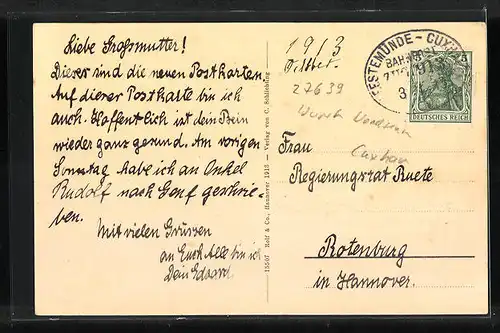 Liebe Grossmutter!
Dieses sind die neuen Postkarten.
Auf dieser Postkarte bin ich
auch. Hoffentlich ist dein Bein
wieder ganz gesund. Am vorigen
Sonntag habe ich an Onkel
Rudolf nach Genf geschrie-
ben.
Mit vielen Grüssen
an Euch Alle bin ich
Dein Eduard.
15507 Rolf & Co., Hannover 1913 – Verlag von C. Schliebting
1913
27639
GEESTEMÜNDE - CUXH
BAHNPOST
DEUTSCHES REICH
5
Cuxhav
Frau
Regierungsrat Ruete
Rotenburg
in Hannover.